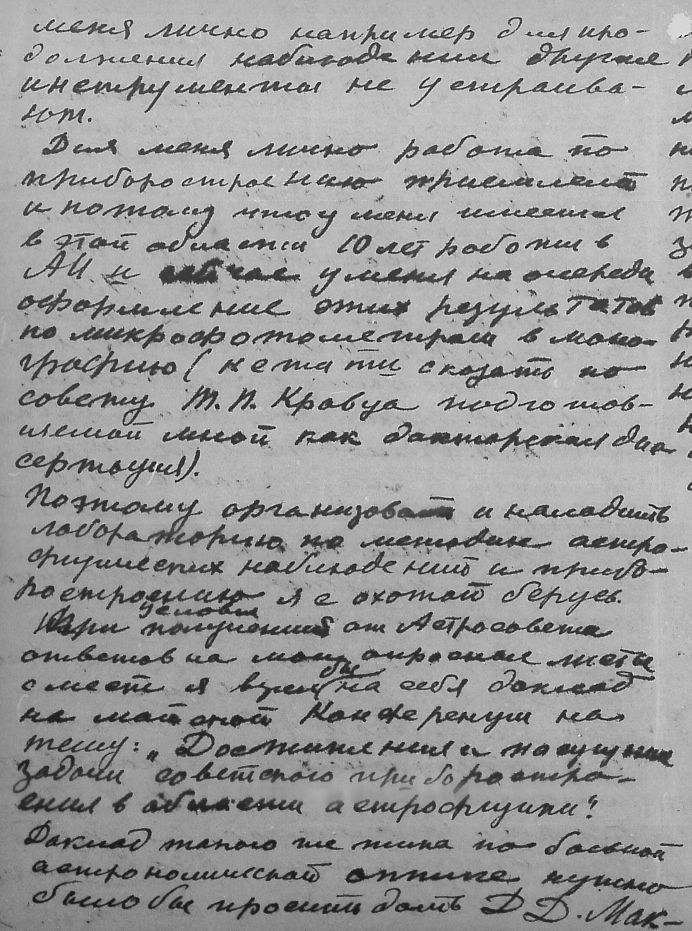 меня лично например для про-
должения наблюдений другие
инструменты не устраива-
ют.
Для меня лично работа по
приборостроению приемлема
и потому что у меня имеется
в этой области 10 лет работы в
АИ и сейчас у меня на очереди
оформление этих результатов
по микрофотометрам в моно-
графию (кстати сказать по
совету Т.П. Кравца подготов-
ляемой мной как докторская дис-
сертация).
Поэтому организовать и наладить
лабораторию по методике астро-
физических наблюдений и прибо-
ростроению я с охотой берусь.
При условии получения от Астросовета
ответов на мои опросные листы
я взял бы на себя доклад
на майской Конференции на
тему: „Достижения и насущные
задачи советского приборостро-
ения в области астрофизики".
Доклад такого же типа по большой
астрономической оптике нужно
было бы просить дать Д.Д. Мак-